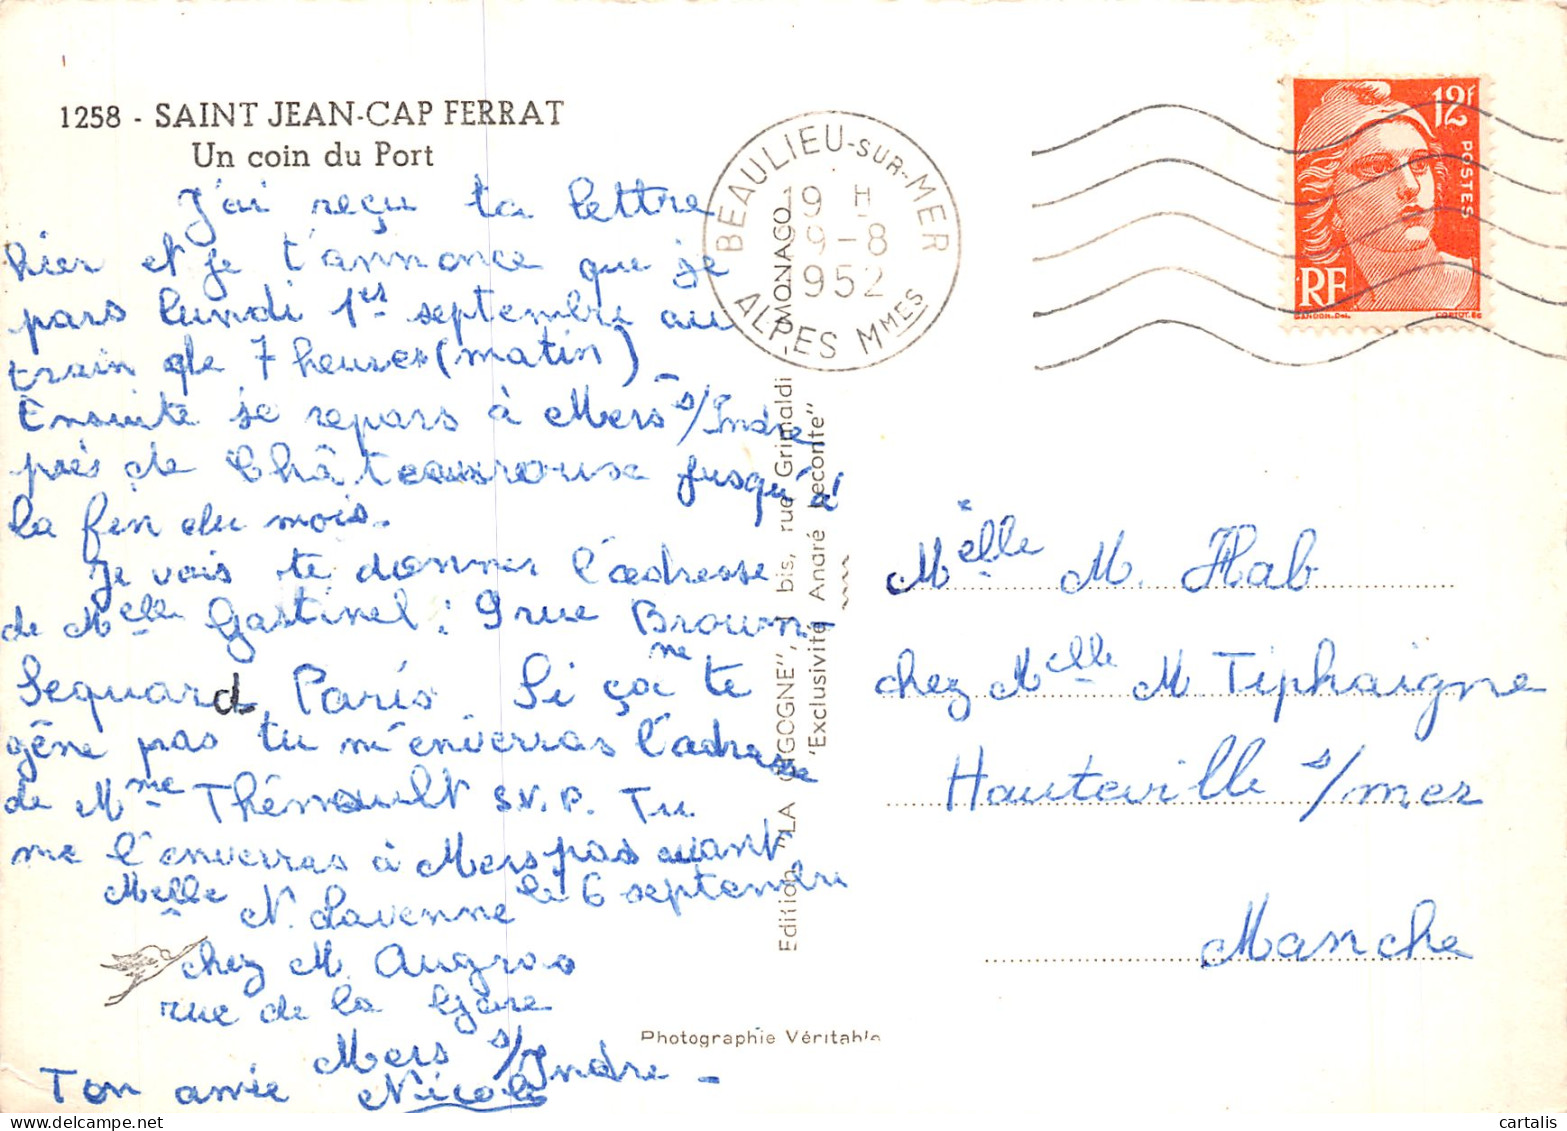 1258 - SAINT JEAN-CAP FERRAT
Un coin du Port
J'ai reçu ta lettre
hier et je t'annonce que je
pars lundi 1er septembre au
train de 7 heures (matin)
Ensuite je repars à Mers s/Indre
près de Châteauroux jusqu'à
la fin du mois.
Je vais te donner l'adresse
de Melle Gastinel : 9 rue Brown-
Sequard Paris. Si ça ne te
gêne pas tu m'enverras l'adresse
de Mme Thénault S.V.P. Tu
me l'enverras à Mers pas avant
le 6 septembre
Melle N. Lavenne
chez M. Augros
rue de la Gare
Mers s/Indre -
Ton amie Nicole
BEAULIEU-SUR-MER
19 H
9-8
1952
ALPES MMES
12F
POSTES
RF
GANDON.Del.
CORTOT.Sc
Edition "LA CIGOGNE", 1 bis, rue Grimaldi MONACO
"Exclusivité André Leconte"
Melle M. Hab
chez Melle M Tiphaigne
Hauteville s/mer
Manche
Photographie Véritable
cartalis